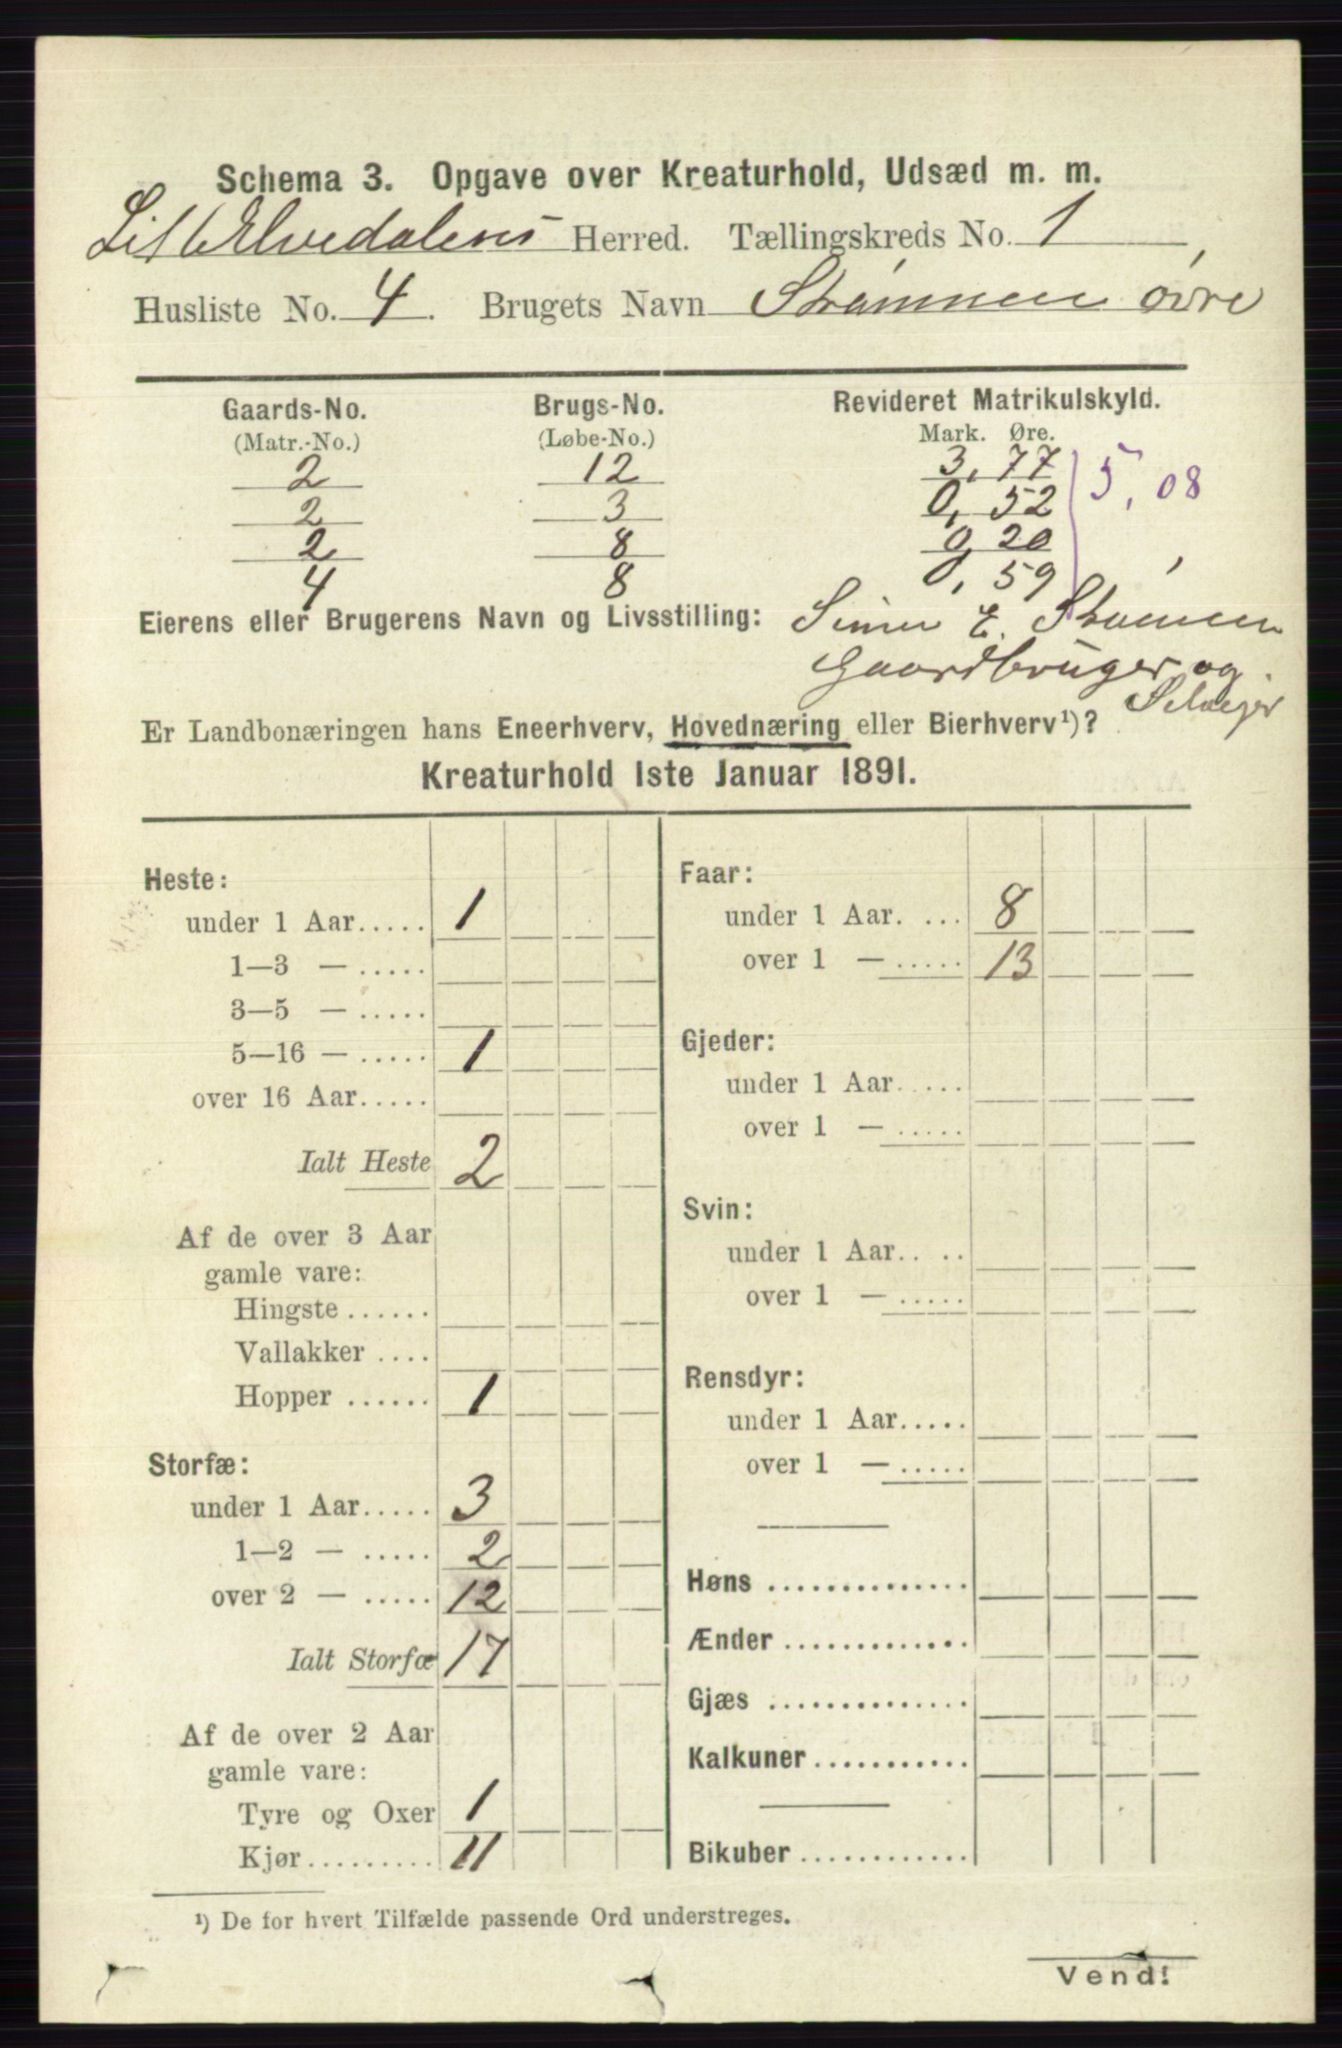 Schema 3. Opgave over Kreaturhold, Udsæd m. m.
Lil Elvedalens Herred. Tællingskreds No. 1,
Husliste No. 4. Brugets Navn Strømmen øvre
Gaards-No. Brugs-No. Revideret Matrikulskyld.
(Matr.-No.) (Løbe-No.) Mark. Øre.
2 12 3,77
2 3 0,52 5,08
2 8 0,20
4 8 0,59
Eierens eller Brugerens Navn og Livsstilling: Simen E. Strømmen
Gaardbruger og
Selveier
Er Landbonæringen hans Eneerhverv, Hovednæring eller Bierhverv¹)?
Kreaturhold 1ste Januar 1891.
Heste:
under 1 Aar..... 1
1—3 — .....
3—5 — .....
5—16 — ..... 1
over 16 Aar.....
Ialt Heste 2
Af de over 3 Aar
gamle vare:
Hingste ......
Vallakker ....
Hopper ...... 1
Storfæ:
under 1 Aar..... 3
1—2 — ..... 2
over 2 — ..... 12
Ialt Storfæ 17
Af de over 2 Aar
gamle vare:
Tyre og Oxer 1
Kjør......... 11
Faar:
under 1 Aar. ... 8
over 1 — ..... 13
Gjeder:
under 1 Aar.....
over 1 — .....
Svin:
under 1 Aar.. ..
over 1 — .....
Rensdyr:
under 1 Aar.....
over 1 — .....
Høns ..............
Ænder .............
Gjæs ..............
Kalkuner...........
Bikuber ............
¹) De for hvert Tilfælde passende Ord understreges.
Vend!